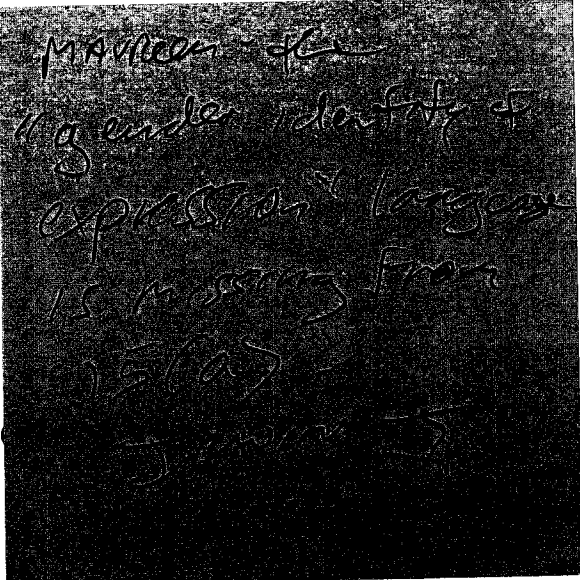 Maureen - the
"gender identity &
expression" language
is missing from